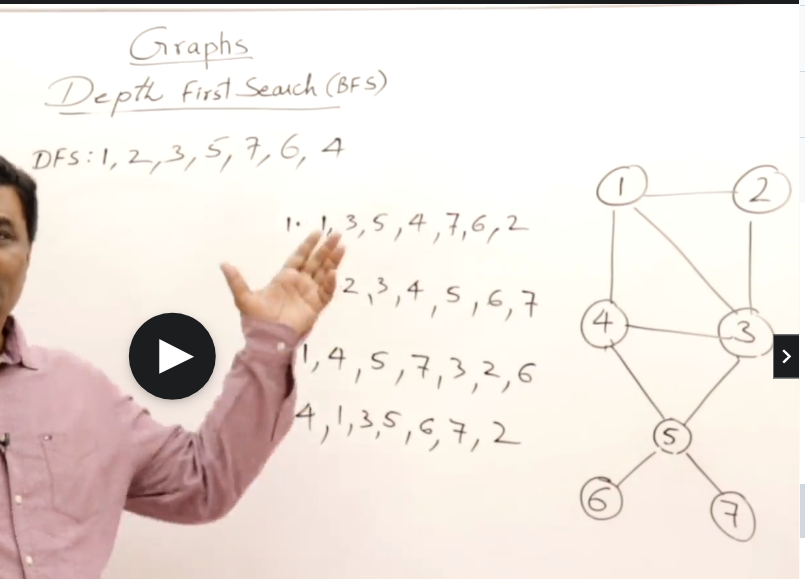 Graphs
Depth First Search (BFS)
DFS: 1, 2, 3, 5, 7, 6, 4
1. 1, 3, 5, 4, 7, 6, 2
2, 3, 4, 5, 6, 7
1, 4, 5, 7, 3, 2, 6
4, 1, 3, 5, 6, 7, 2
1
2
4
3
5
6
7